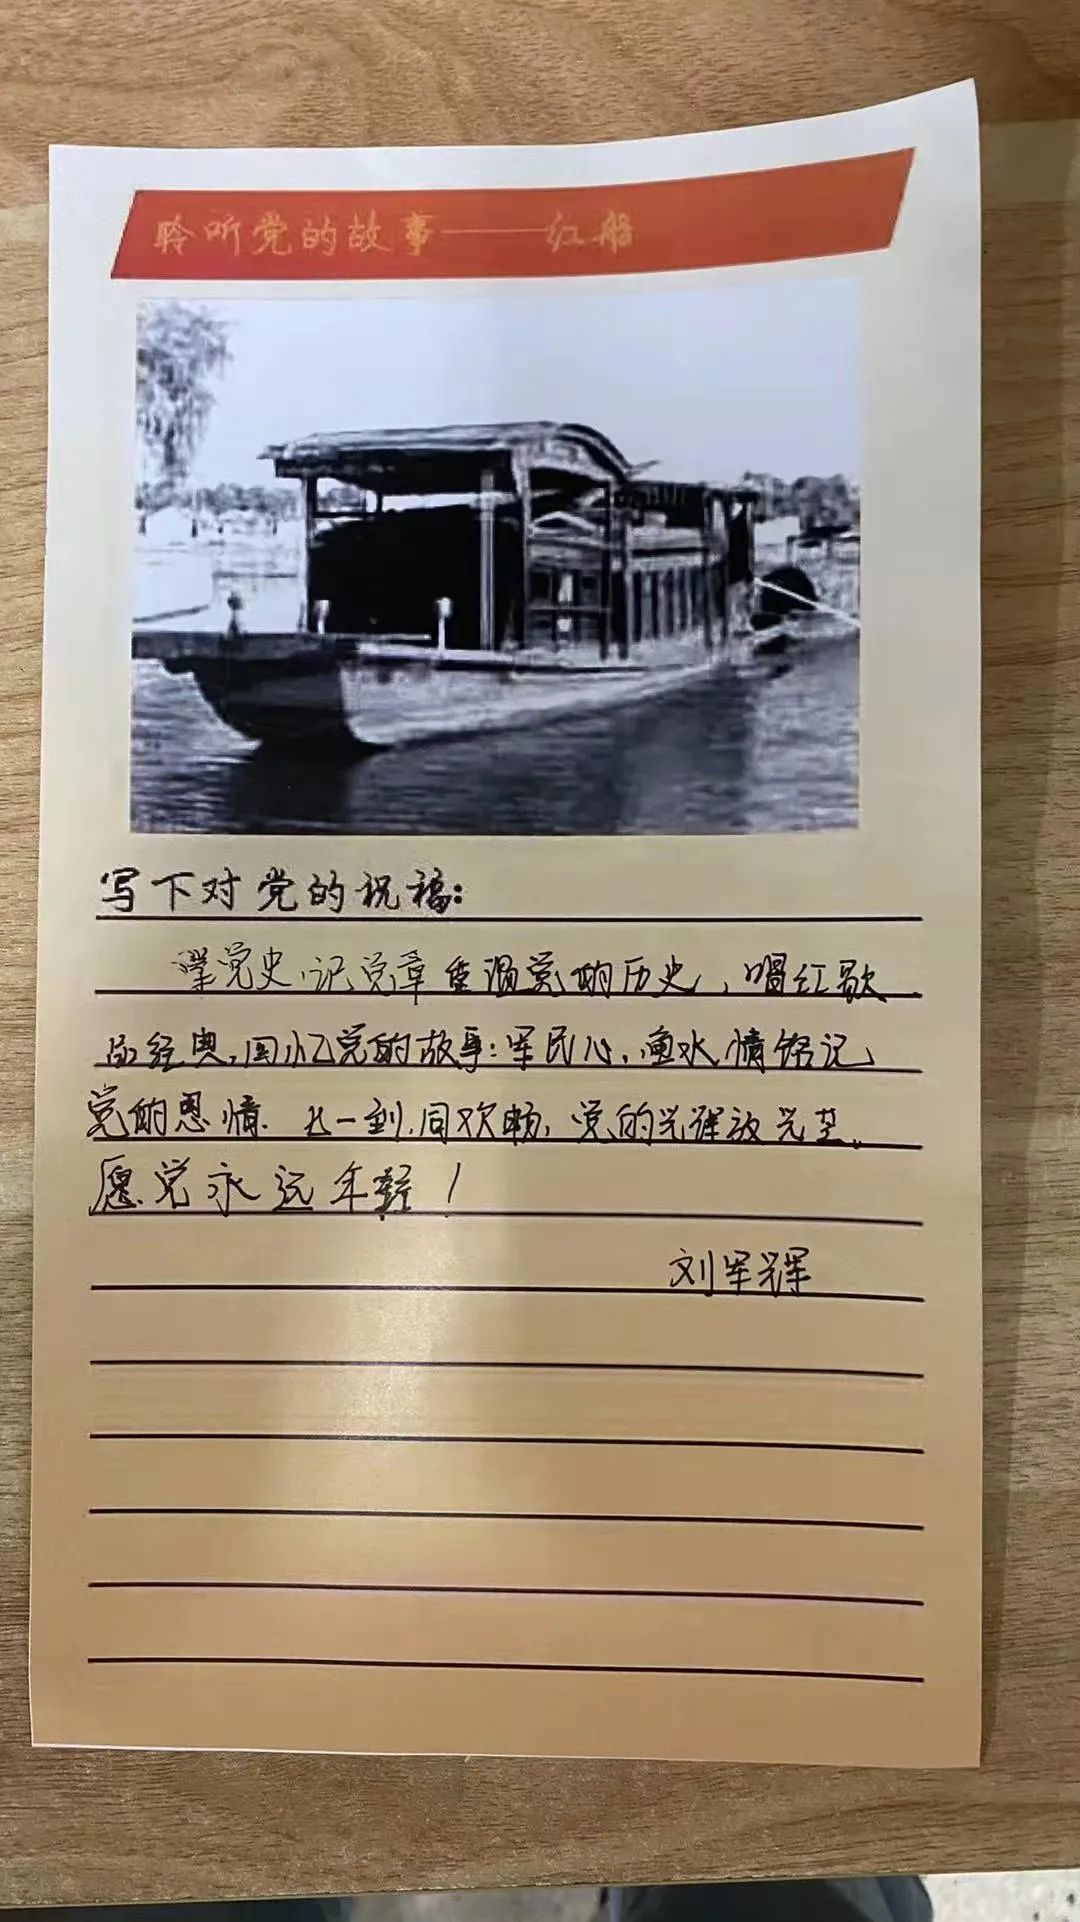 聆听党的故事——红船
写下对党的祝福:
学党史,记党章重温党的历史,唱红歌
经典,回忆党的故事:军民心,鱼水情铭记
党的恩情.七一到,同欢畅,党的光辉放光芒。
愿党永远年轻!
刘军辉